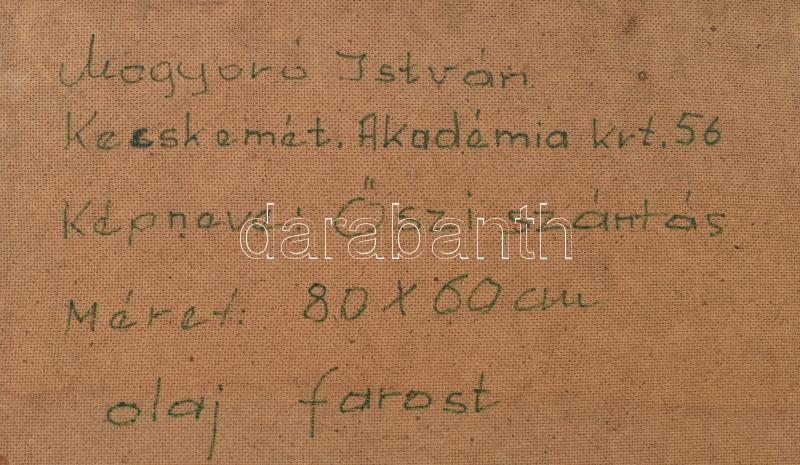 Mogyoró István
Kecskemét. Akadémia krt. 56
Képneve: Őszi szántás
darabanth
Méret: 80 x 60 cm
olaj farost